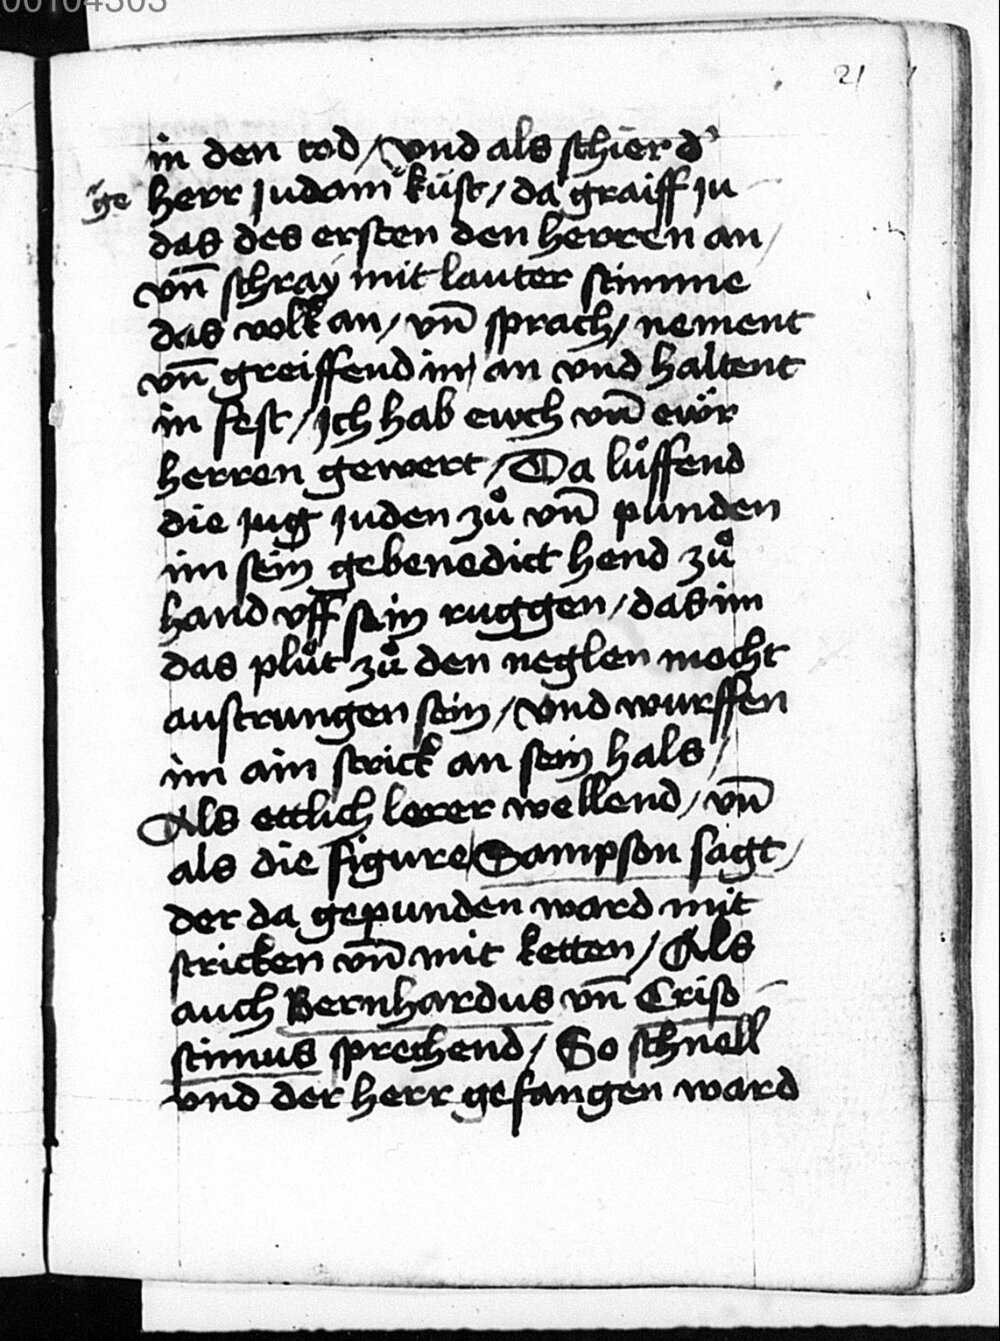 00104303
21
in den tod / Vnd als schier d'
herr judam kust / da graiff ju
ge
das des ersten den herren an /
vn̄ schray mit lauter stimme
das volk an / vn̄ sprach / nement
vn̄ greiffend in an vnd haltent
in fest / Ich hab ewch vn̄ ewr
herren gewert / Da lůffend
die jug juden zů vn̄ punden
im sein gebenedict hend zů
hand vff sein ruggen / das im
das plůt zů den neglen mocht
austrungen sein / Vnd wurffen
im ain strick an sein hals /
Als ettlich lerer wellend / vn̄
als die figure Sampson sagt /
der da gepunden ward mit
stricken vn̄ mit ketten / Als
auch Bernhardus vn̄ Criso
stimus sprechend / So schnell
vnd der herr gefangen ward